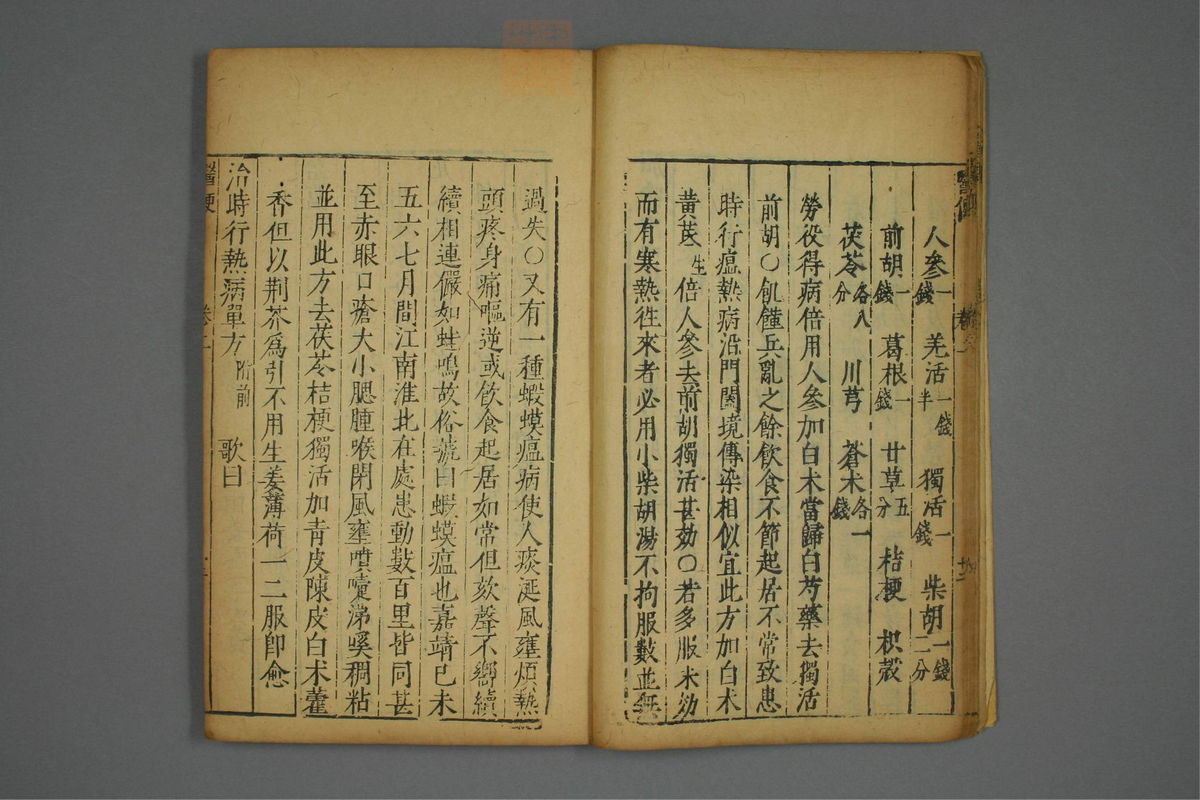 人參一錢　羌活一錢半　獨活一錢　柴胡一錢二分
前胡一錢　葛根一錢　甘草五分　桔梗　枳殼
茯苓各八分　川芎　蒼术各一錢
勞役得病倍用人參加白术當歸白芍藥去獨活
前胡○飢饉兵亂之餘飲食不節起居不常致患
時行瘟熱病沿門闔境傳染相似宜此方加白术
黃芪生倍人參去前胡獨活甚効○若多服未効
而有寒熱往來者必用小柴胡湯不拘服數並無
過失○又有一種蝦蟆瘟病使人痰涎風壅煩熱
頭疼身痛嘔逆或飲食起居如常但欬聲不響續
續相連儼如蛙鳴故俗號曰蝦蟆瘟也嘉靖己未
五六七月間江南淮北在處患動數百里皆同甚
至赤眼口瘡大小腮腫喉閉風壅噴嚏涕唾稠粘
並用此方去茯苓桔梗獨活加青皮陳皮白术藿
香但以荆芥為引不用生姜薄荷一二服即愈
治時行熱病單方附前　歌曰